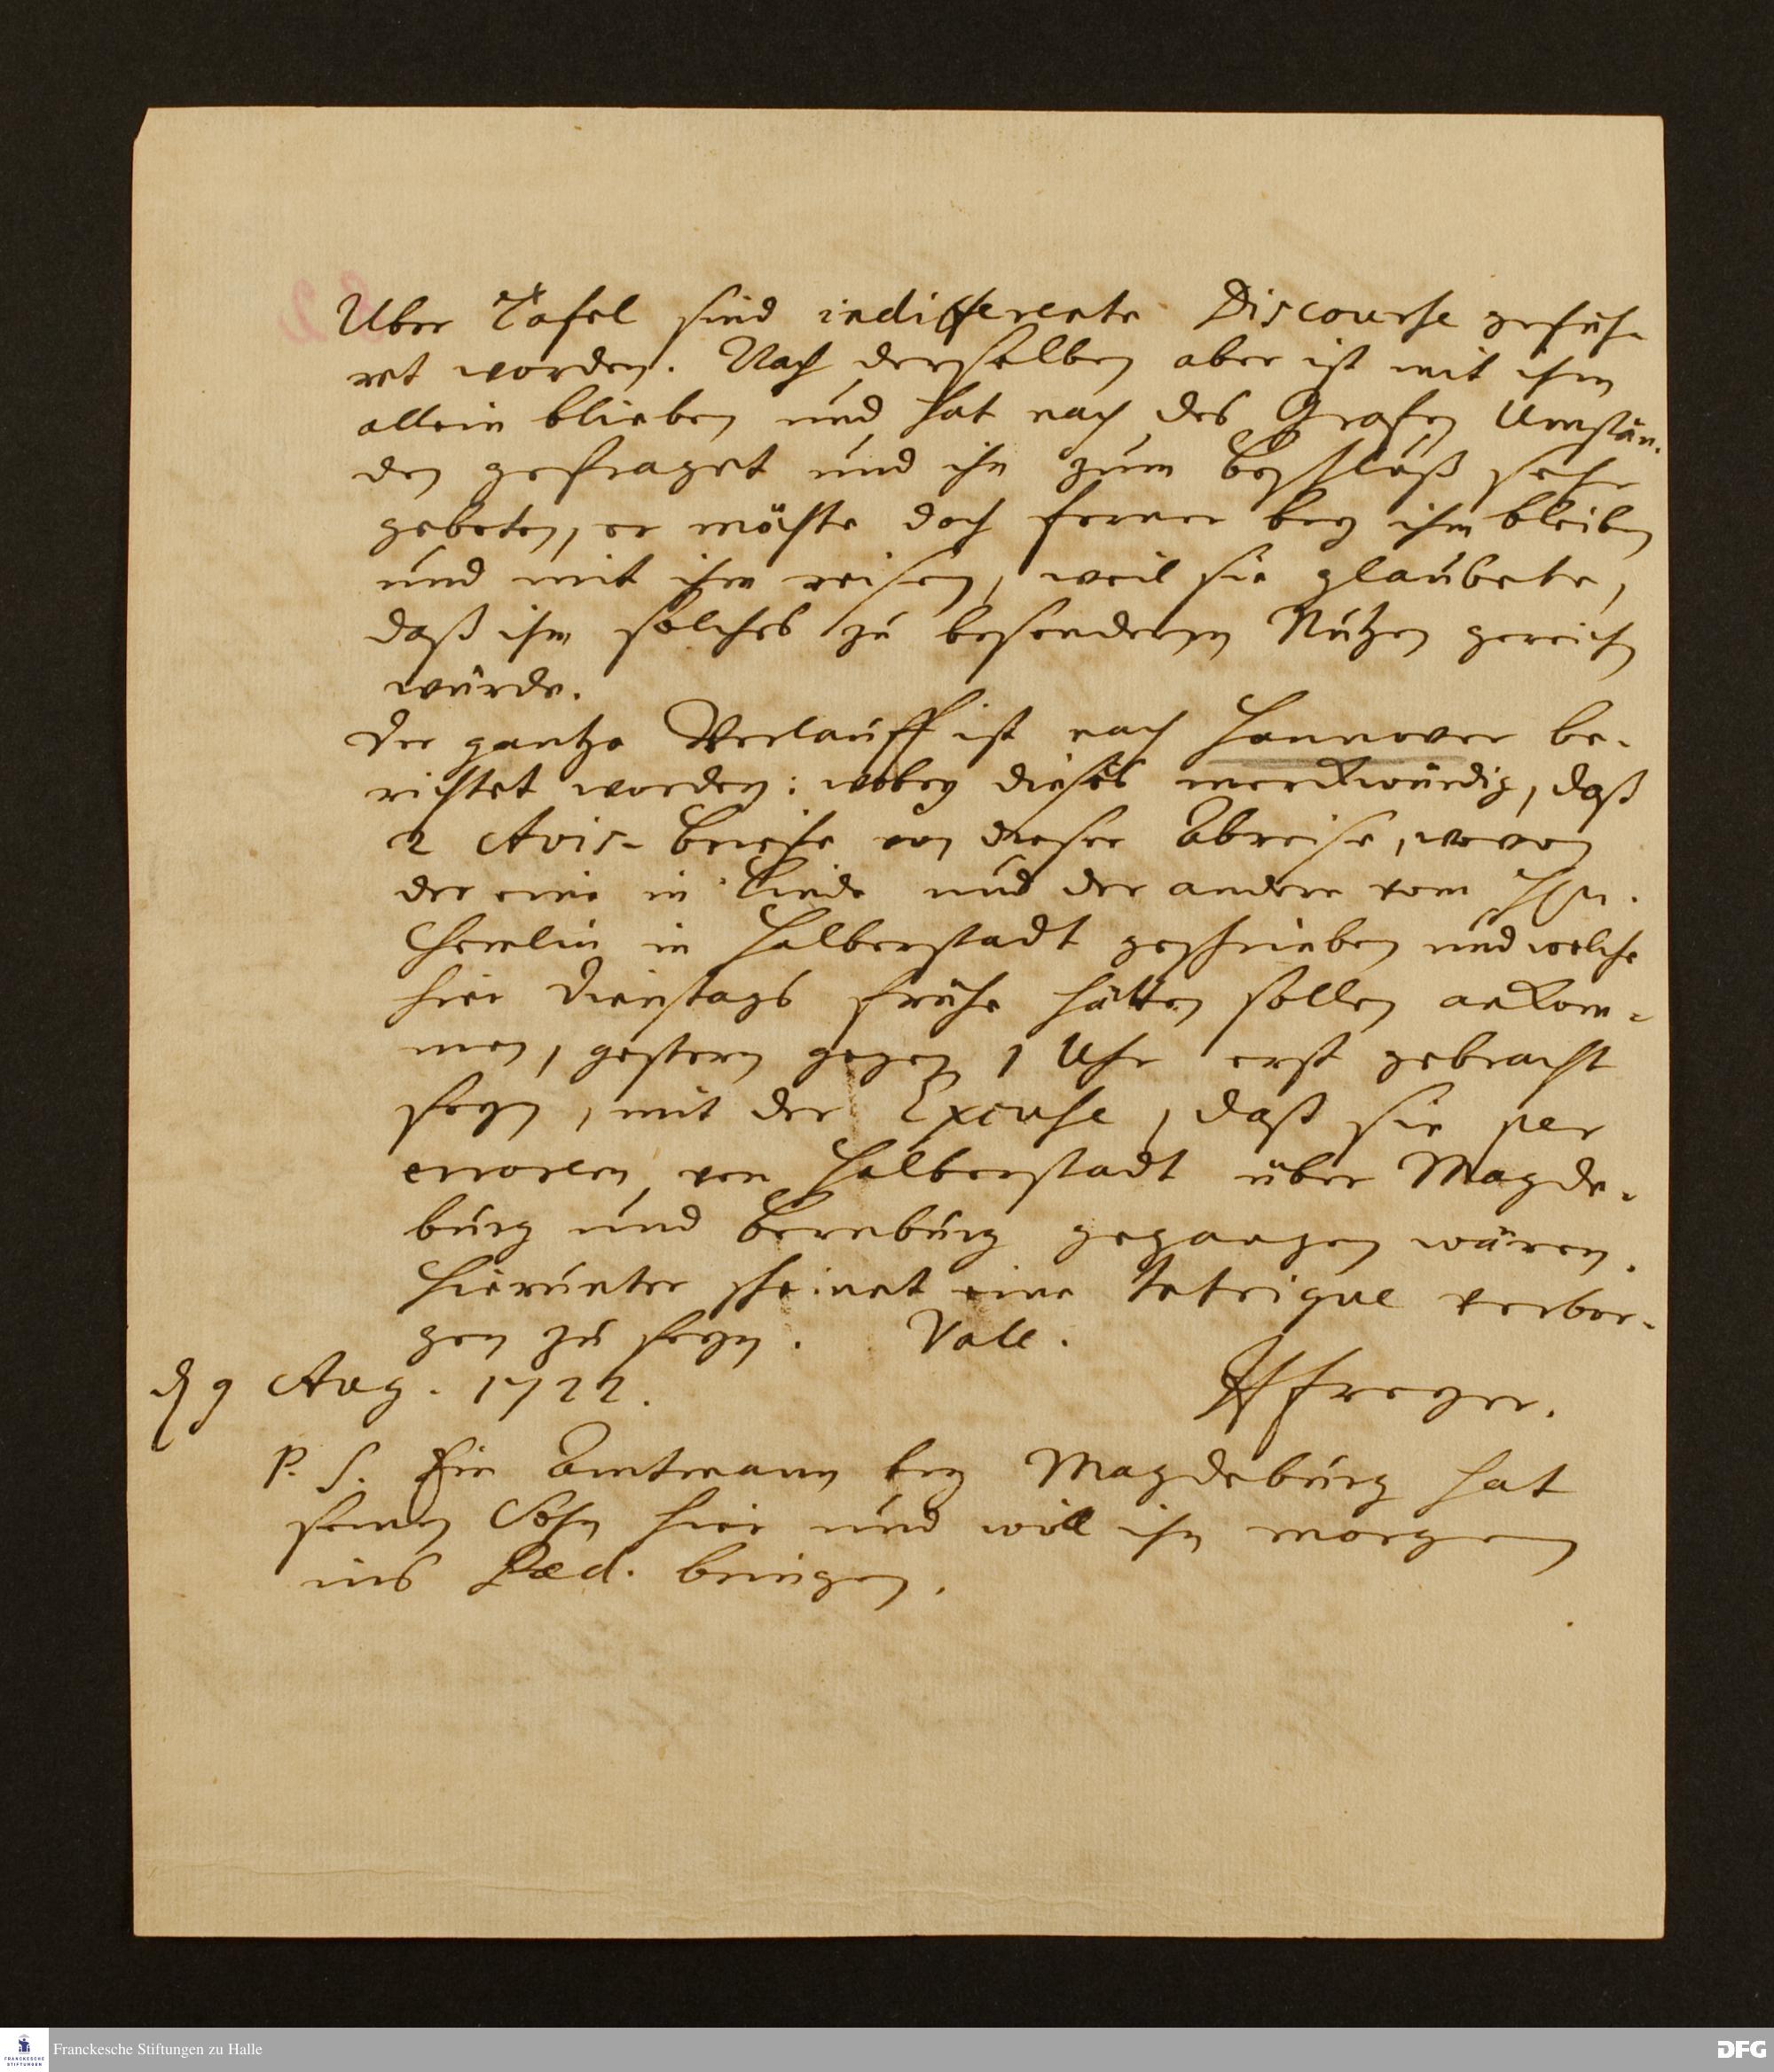 Uber Tafel sind indifferente Discourse gefüh-
ret worden. Nach derselben aber ist mit ihm
allein blieben und hat nach des Grafen Umstän-
den gefraget und ihn zum Beschluß sehr
gebeten, er möchte doch ferner bey ihm bleiben
und mit ihm reisen, weil sie glaubete,
daß ihm solches zu besonderem Nutzen gereichen
würde.
Der gantze Verlauff ist nach Hannover be-
richtet worden: wobey dieses merckwürdig, daß
2 Avis-Briefe von dieser Abreise, wovon
der eine in und der andere vom Hn.
in Halberstadt geschrieben und welche
hier Dienstags frühe hätten sollen ankom-
men, gestern gegen 1 Uhr erst gebracht
seyn, mit der Excuse, daß sie per
errorem von Halberstadt über Magde-
burg und Bernburg gegangen wären.
Hierunter scheinet eine Intrigue verbor-
gen zu seyn. Vale.
d 9 Aug. 1722.
Freyer.
P. S. Ein Amtmann bey Magdeburg hat
seinen Sohn hier und will ihn morgen
ins Pæd. bringen.
Franckesche Stiftungen zu Halle
FRANCKESCHE
STIFTUNGEN
DFG